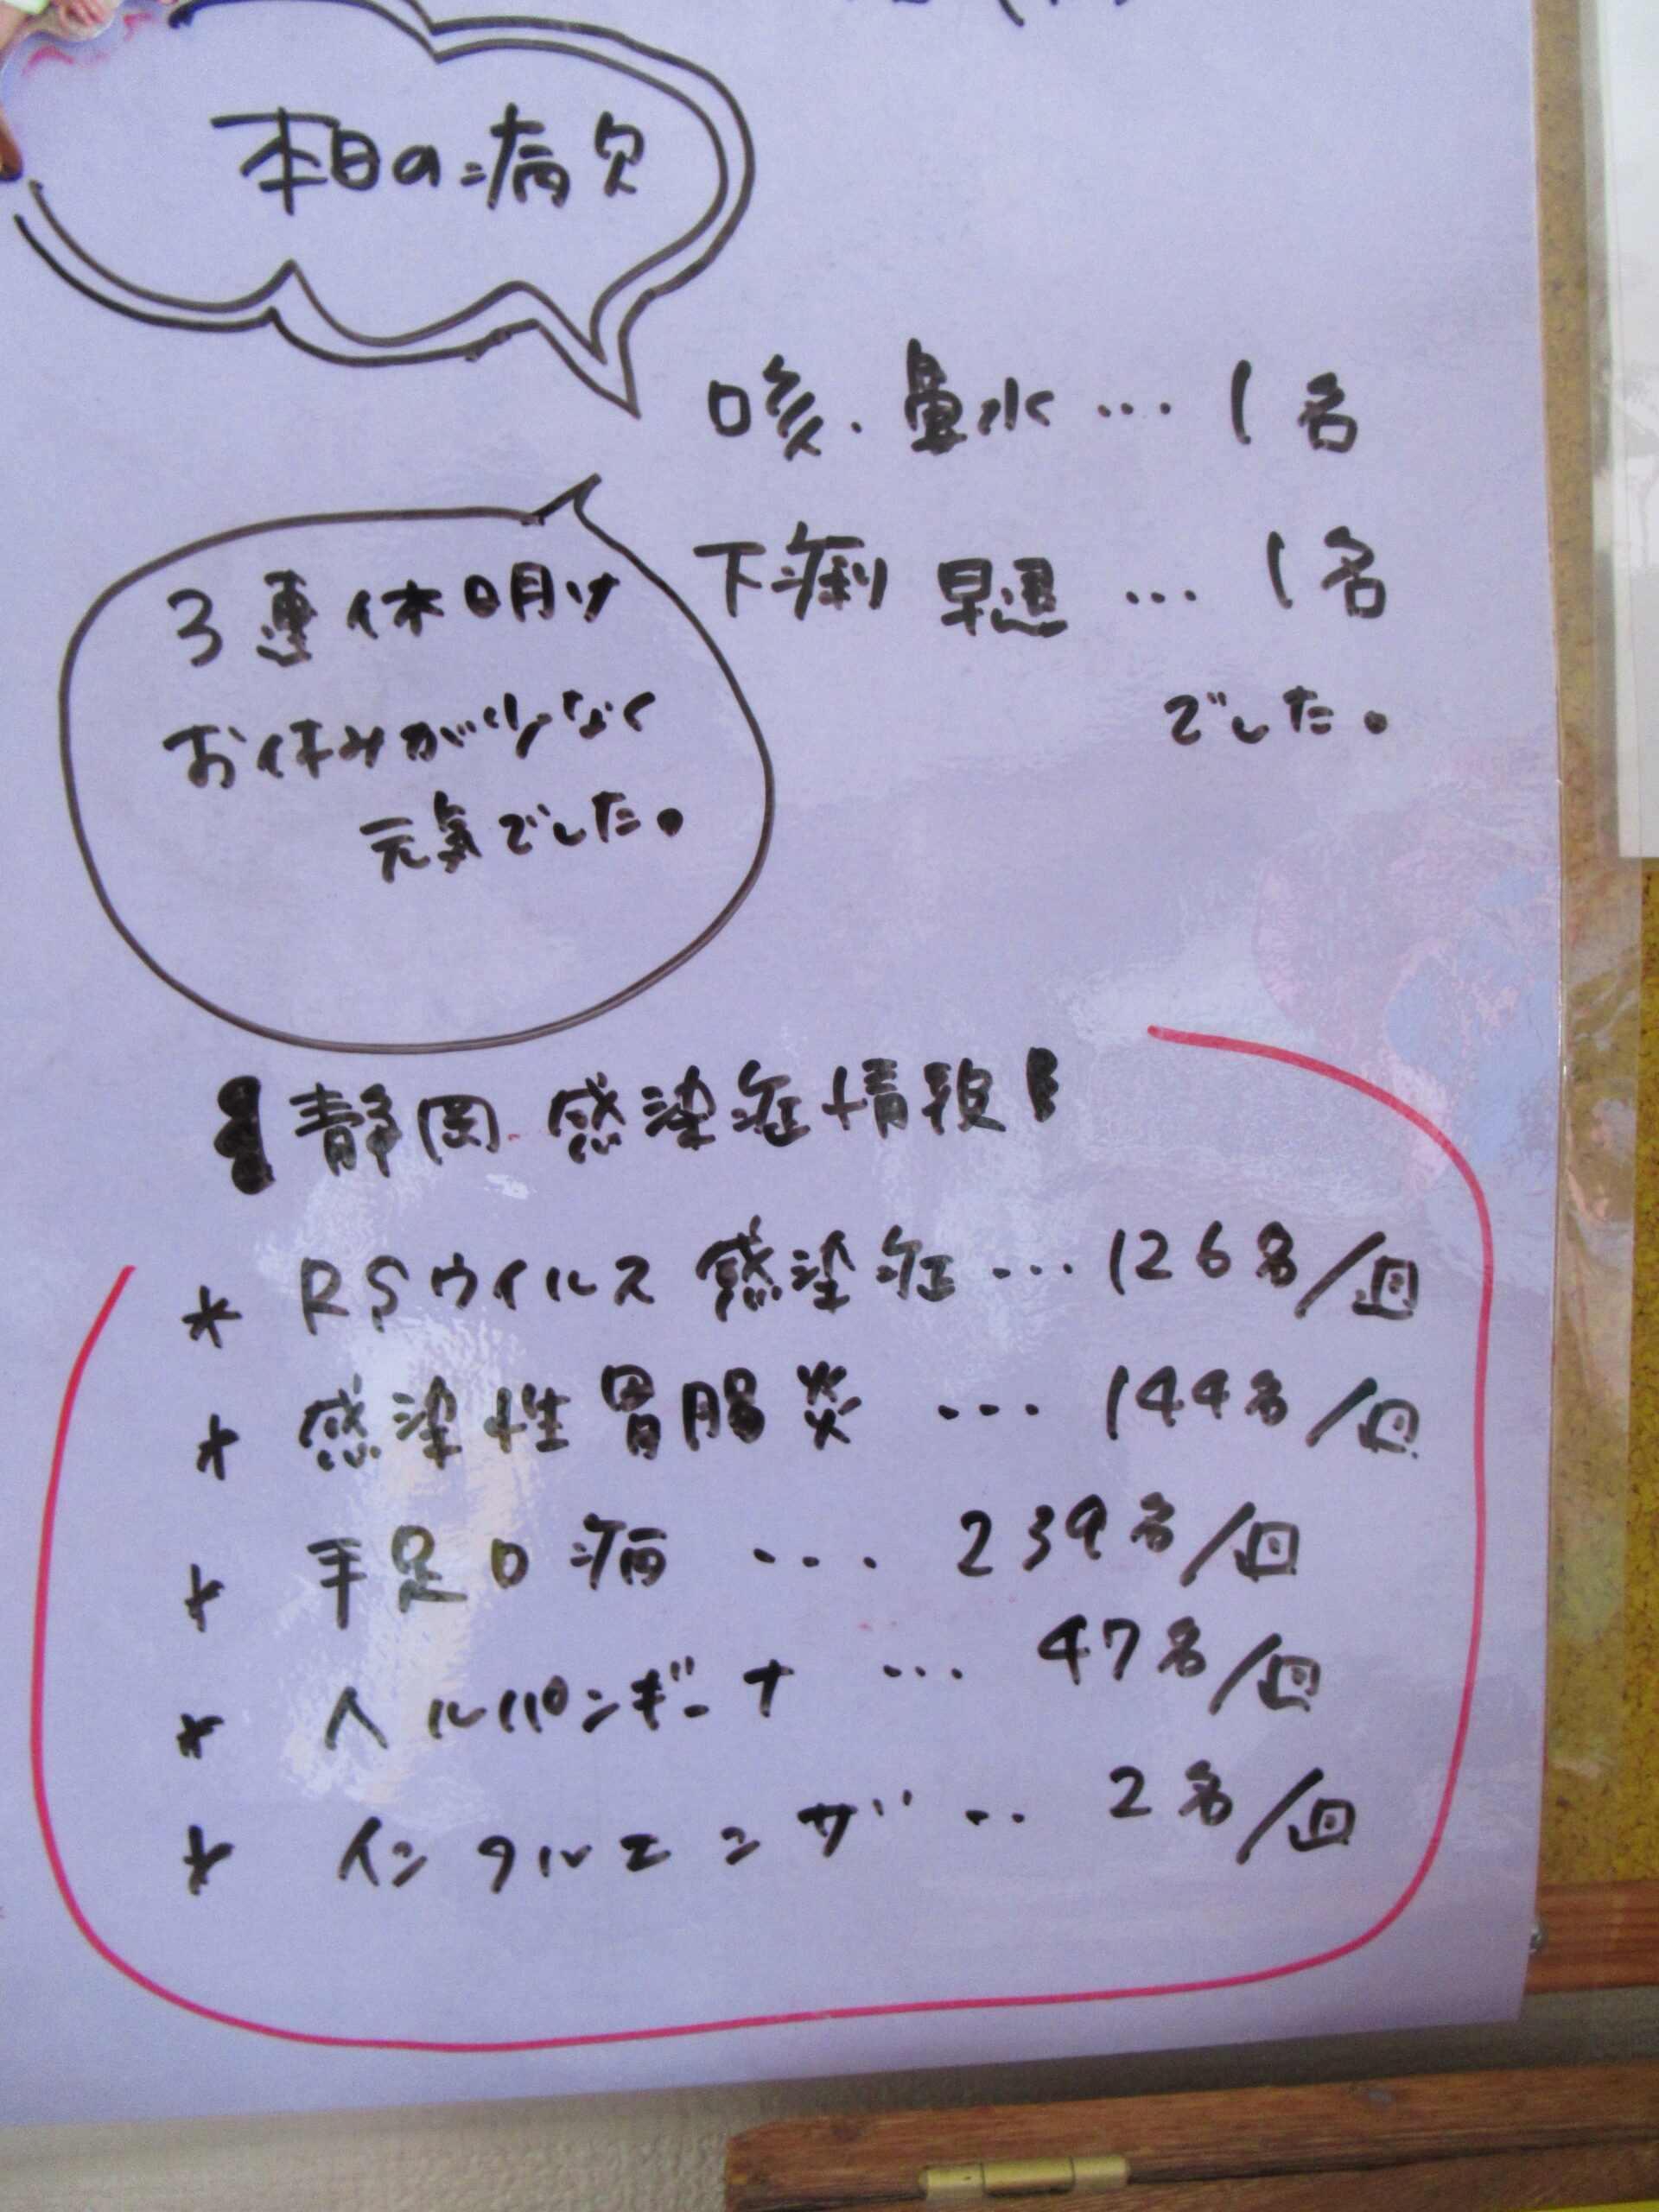 本日の病欠
咳.鼻水… 1名
下痢 早退… 1名
でした。
3連休明け
お休みが少なく
元気でした。
静岡 感染症情報
* RSウイルス感染症… 126名/週
* 感染性胃腸炎 … 144名/週
* 手足口病 … 239名/週
* ヘルパンギーナ … 47名/週
* インフルエンザ‥ 2名/週